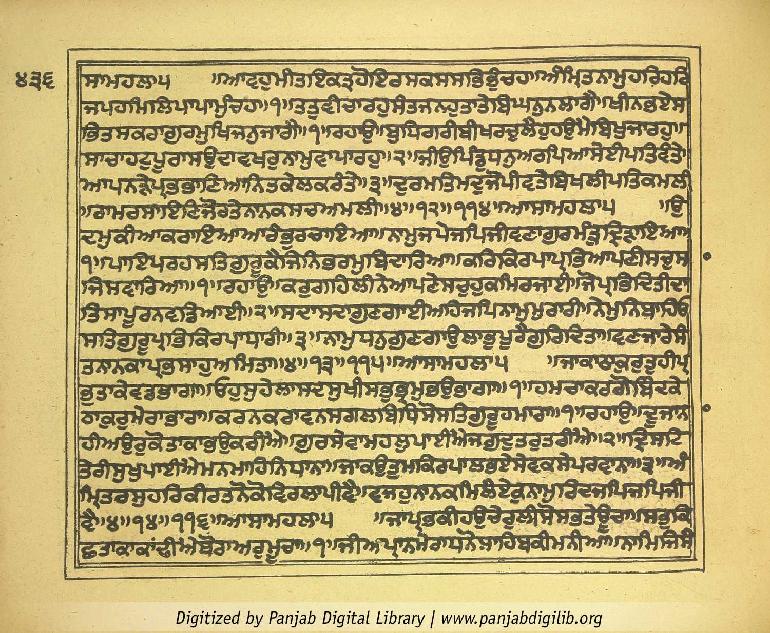 ੪੩੬
ਸਾਮਹਲਾ੫ ॥ਆਵਹੁਮੀਤਇਕਤ੍ਰਹੋਇਰਸਕਸਸਭਿਭੁੰਚਹ॥ਅੰਮ੍ਰਿਤਨਾਮੁਹਰਿਹਰਿ
ਜਪਹਮਿਲਿਪਾਪਾਮੁੰਚਹ॥੧॥ਤਤੁਵੀਚਾਰਹੁਸੰਤਜਨਹੁਤਾਤੇਬਿਘਨੁਨਲਾਗੈ॥ਖੀਨਭਏਸ
ਭਿਤਸਕਰਾਗੁਰਮੁਖਿਜਨੁਜਾਗੈ॥੧॥ਰਹਾਉ॥ਬੁਧਿਗਰੀਬੀਖਰਚੁਲੈਹੁਹਉਮੈਬਿਖੁਜਾਰਹੁ॥
ਸਾਚਾਹਟੁਪੂਰਾਸਉਦਾਵਖਰੁਨਾਮੁਵਾਪਾਰਹੁ॥੨॥ਜੀਉਪਿੰਡੁਧਨੁਅਰਪਿਆਸੇਈਪਤਿਵੰਤੇ॥
ਆਪਨੜੇਪ੍ਰਭਭਾਣਿਆਨਿਤਕੇਲਕਰੰਤੇ॥੩॥ਦੁਰਮਤਿਮਦੁਜੋਪੀਵਤੇਬਿਖਲੀਪਤਿਕਮਲੀ
॥ਰਾਮਰਸਾਇਣਿਜੋਰਤੇਨਾਨਕਸਚਅਮਲੀ॥੪॥੧੨॥੧੧੪॥ਆਸਾਮਹਲਾ੫ ॥ਉ
ਦਮੁਕੀਆਕਰਾਇਆਆਰੰਭੁਰਚਾਇਆ॥ਨਾਮੁਜਪੇਜਪਿਜੀਵਣਾਗੁਰਿਮੰਤ੍ਰੁਦ੍ਰਿੜਾਇਆ॥
੧॥ਪਾਇਪਰਹਸਤਿਗੁਰੂਕੈਜਿਨਿਭਰਮੁਬਿਦਾਰਿਆ॥ਕਰਿਕਿਰਪਾਪ੍ਰਭਿਆਪਣੀਸਚੁਸਾ
ਜਿਸਵਾਰਿਆ॥੧॥ਰਹਾਉ॥ਕਰੁਗਹਿਲੀਨੇਆਪਣੇਸਚੁਹੁਕਮਿਰਜਾਈ॥ਜੋਪ੍ਰਭਿਦਿਤੀਦਾ
ਤਿਸਾਪੂਰਨਵਡਿਆਈ॥੨॥ਸਦਾਸਦਾਗੁਣਗਾਈਅਹਿਜਪਿਨਾਮੁਮੁਰਾਰੀ॥ਨੇਮੁਨਿਬਾਹਿਓ
ਸਤਿਗੁਰੂਪ੍ਰਭਿਕਿਰਪਾਧਾਰੀ॥੩॥ਨਾਮੁਧਨੁਗੁਣਗਾਉਲਾਭੁਪੂਰੈਗੁਰਿਦਿਤਾ॥ਵਣਜਾਰੇਸੰ
ਤਨਾਨਕਾਪ੍ਰਭੁਸਾਹੁਅਮਿਤਾ॥੪॥੧੩॥੧੧੫॥ਆਸਾਮਹਲਾ੫ ॥ਜਾਕਾਠਾਕੁਰੁਤੁਹੀਪ੍ਰ
ਭਤਾਕੇਵਡਭਾਗਾ॥ਓਹੁਸੁਹੇਲਾਸਦਸੁਖੀਸਭੁਭ੍ਰਮੁਭਉਭਾਗਾ॥੧॥ਹਮਚਾਕਰਗੋਬਿੰਦਕੇ
ਠਾਕੁਰੁਮੇਰਾਭਾਰਾ॥ਕਰਨਕਰਾਵਨਸਗਲਬਿਧਿਸੋਸਤਿਗੁਰੂਹਮਾਰਾ॥੧॥ਰਹਾਉ॥ਦੂਜਾਨਾ
ਹੀਅਉਰੁਕੋਤਾਕਾਭਉਕਰੀਐ॥ਗੁਰਸੇਵਾਮਹਲੁਪਾਈਐਜਗੁਦੁਤਰੁਤਰੀਐ॥੨॥ਦ੍ਰਿਸਟਿ
ਤੇਰੀਸੁਖੁਪਾਈਐਮਨਮਾਹਿਨਿਧਾਨਾ॥ਜਾਕਉਤੁਮਕਿਰਪਾਲਭਏਸੇਵਕਸੇਪਰਵਾਨਾ॥੩॥ਅੰ
ਮ੍ਰਿਤਰਸੁਹਰਿਕੀਰਤਨੋਕੋਵਿਰਲਾਪੀਵੈ॥ਵਜਹੁਨਾਨਕਮਿਲੈਏਕੁਨਾਮੁਰਿਦਜਪਿਜਪਿਜੀ
ਵੈ॥੪॥੧੪॥੧੧੬॥ਆਸਾਮਹਲਾ੫ ॥ਜਾਪ੍ਰਭਕੀਹਉਚੇਰੁਲੀਸੋਸਭਤੇਊਚਾ॥ਸਭੁਕਿ
ਛੁਤਾਕਾਕਾਂਢੀਐਥੋਰਾਅਰੁਮੂਚਾ॥੧॥ਜੀਅਪ੍ਰਾਨਮੇਰਾਧਨੋਸਾਹਿਬਕੀਮਨੀਆ॥ਨਾਮਿਜਿਸੈ
Digitized by Panjab Digital Library | www.panjabdigilib.org